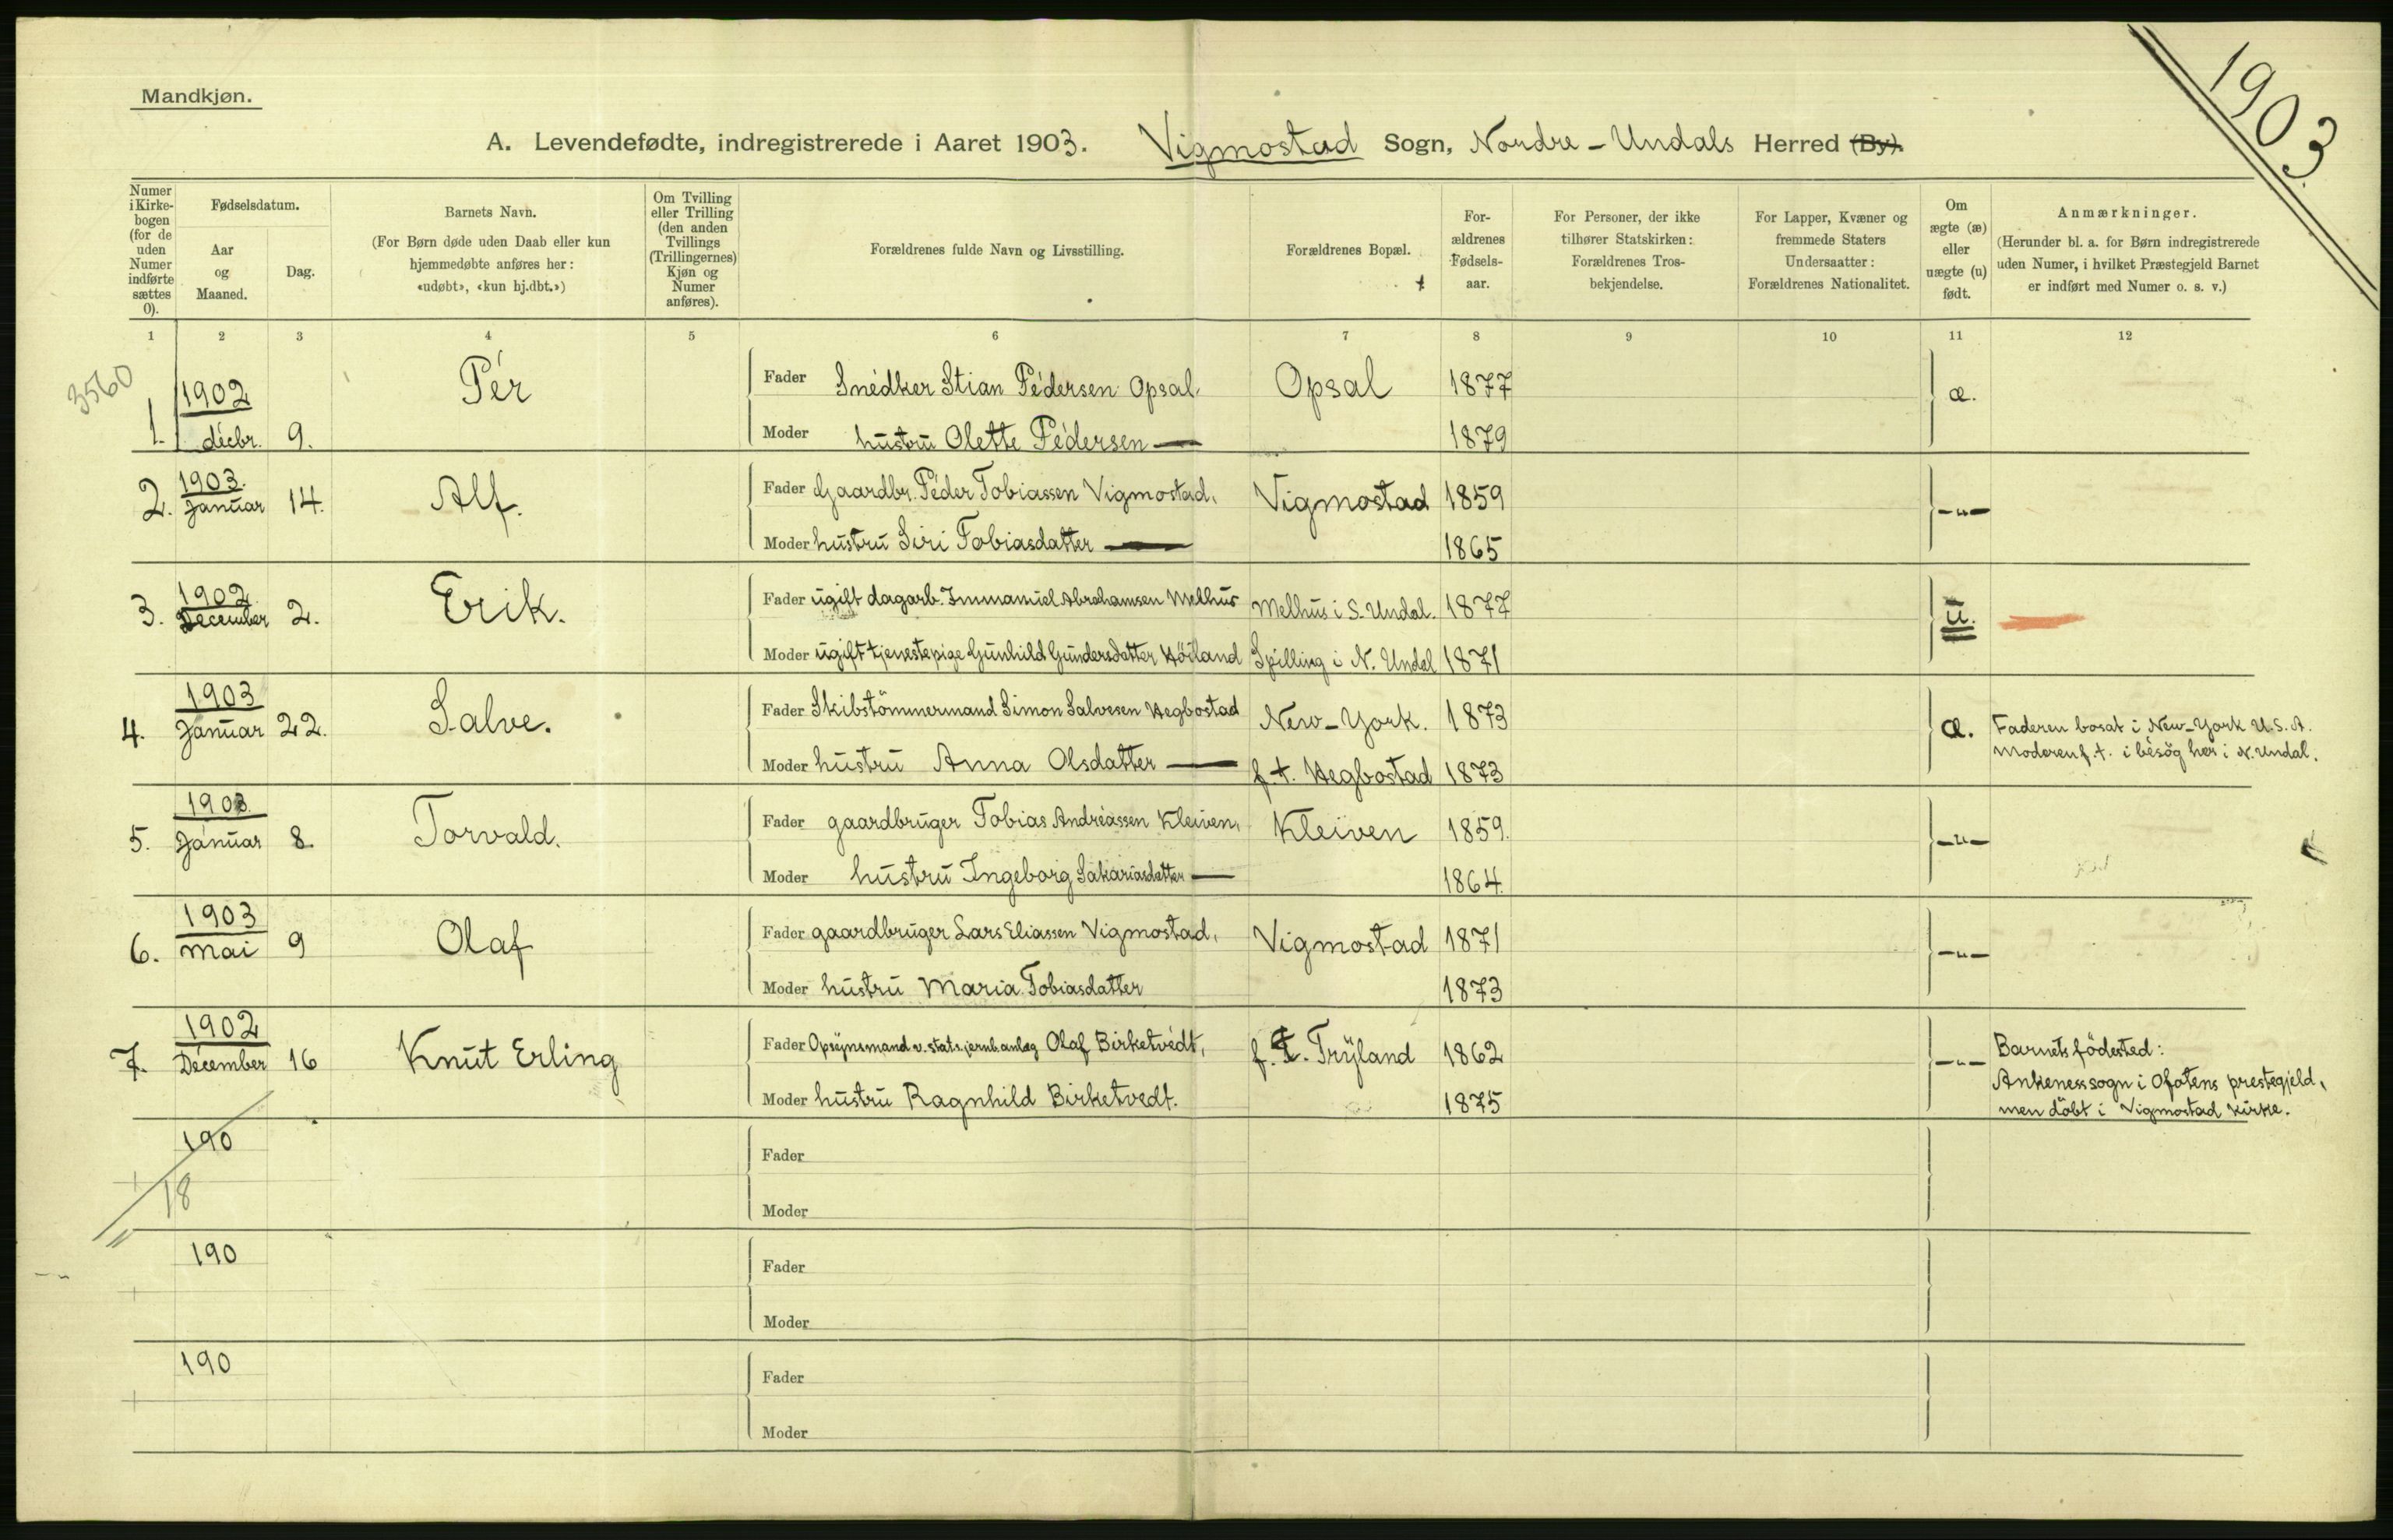 1903.
Mandkjøn.
A. Levendefødte, indregistrerede i Aaret 1903. Vigmostad Sogn, Nordre-Undals Herred (By).
Numer i Kirkebogen (for de uden Numer indførte sættes 0).
Fødselsdatum.
Aar og Maaned.
Dag.
Barnets Navn.
(For Børn døde uden Daab eller kun hjemmedøbte anføres her: «udøbt», «kun hj.dbt.»)
Om Tvilling eller Trilling (den anden Tvillings (Trillingernes) Kjøn og Numer anføres).
Forældrenes fulde Navn og Livsstilling.
Forældrenes Bopæl.
Forældrenes Fødselsaar.
For Personer, der ikke tilhører Statskirken: Forældrenes Trosbekjendelse.
For Lapper, Kvæner og fremmede Staters Undersaatter: Forældrenes Nationalitet.
Om ægte (æ) eller uægte (u) født.
Anmærkninger.
(Herunder bl. a. for Børn indregistrerede uden Numer, i hvilket Præstegjeld Barnet er indført med Numer o. s. v.)
1 2 3 4 5 6 7 8 9 10 11 12
3560
1. 1902 decbr. 9. Per
Fader Snedker Stian Pedersen Opsal. Opsal 1877 æ.
Moder hustru Olette Pedersen — 1879
2. 1903. Januar 14. Alf.
Fader Gaardbr. Peder Tobiassen Vigmostad, Vigmostad 1859 -"-
Moder hustru Siri Tobiasdatter — 1865
3. 1902 December 2. Erik.
Fader ugift dagarb. Immanuel Abrahamsen Melhus Melhus i S. Undal. 1877 u.
Moder ugift tjenestepige Gunhild Gundersdatter Höiland Spilling i N. Undal 1871
4. 1903 Januar 22. Salve.
Fader Skibstömmermand Simon Salvesen Hegbostad New-York. 1873 æ. Faderen bosat i New-York U.S.A.
Moder hustru Anna Olsdatter — f. t. Hegbostad 1873 Moderen f. t. i besög her i N. Undal.
5. 1903. Januar 8. Torvald.
Fader gaardbruger Tobias Andreassen Kleiven, Kleiven 1859. -"-
Moder hustru Ingeborg Sakariasdatter — 1864.
6. 1903 Mai 9 Olaf
Fader gaardbruger Lars Eliassen Vigmostad, Vigmostad 1871 -"-
Moder hustru Maria Tobiasdatter 1873
7. 1902 December 16 Knut Erling
Fader Opsynsmand v. stats jernb. anlæg Olaf Birketvedt, f. t. Tryland 1862 -"- Barnets födested:
Ankenes sogn i Ofotens prestegjeld,
Moder hustru Ragnhild Birketvedt. 1875 men döbt i Vigmostad kirke.
190
Fader
18
Moder
190
Fader
Moder
190
Fader
Moder